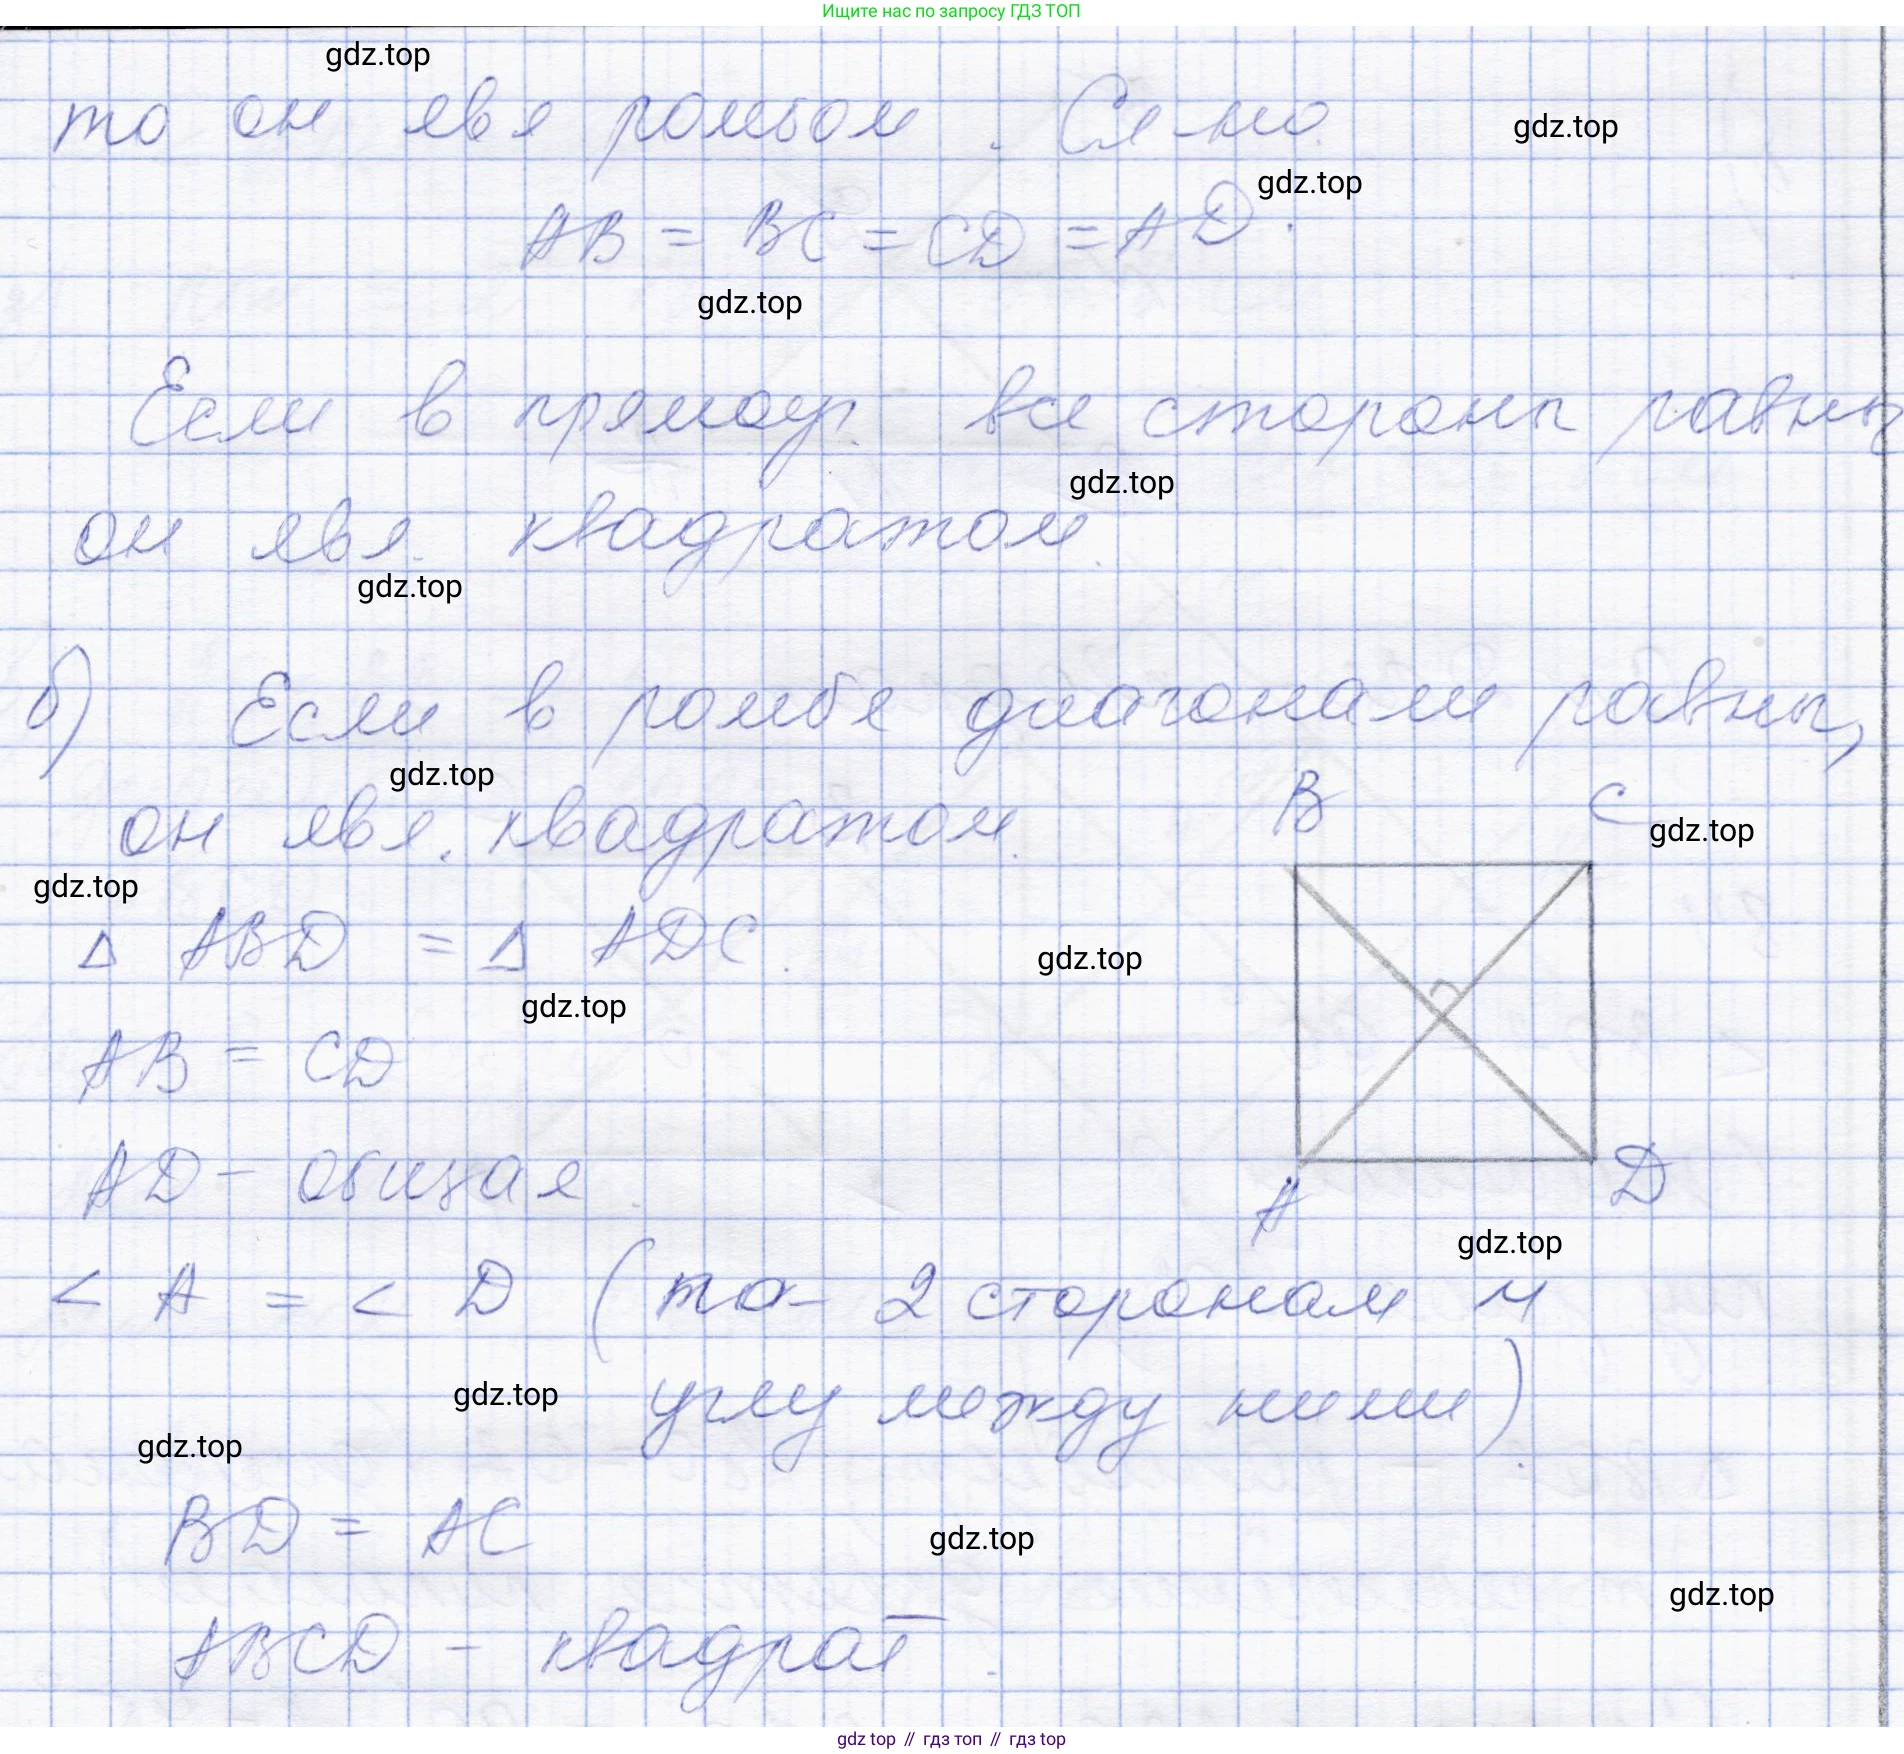 Ищите нас по запросу ГДЗ ТОП
gdz.top
то он явл ромбом. Сл-но
gdz.top
gdz.top
AB = BC = CD = AD.
gdz.top
Если в прямоуг. все стороны равны
gdz.top
он явл. квадратом.
gdz.top
б) Если в ромбе диагонали равны,
gdz.top
он явл. квадратом.
B C
gdz.top
gdz.top
Δ ABD = Δ ADC.
gdz.top
gdz.top
AB = CD
AD - общая.
A D
gdz.top
< A = < D (по 2 сторонам и
gdz.top
углу между ними).
gdz.top
BD = AC
gdz.top
gdz.top
ABCD - квадрат.
gdz top // гдз топ // гдз top